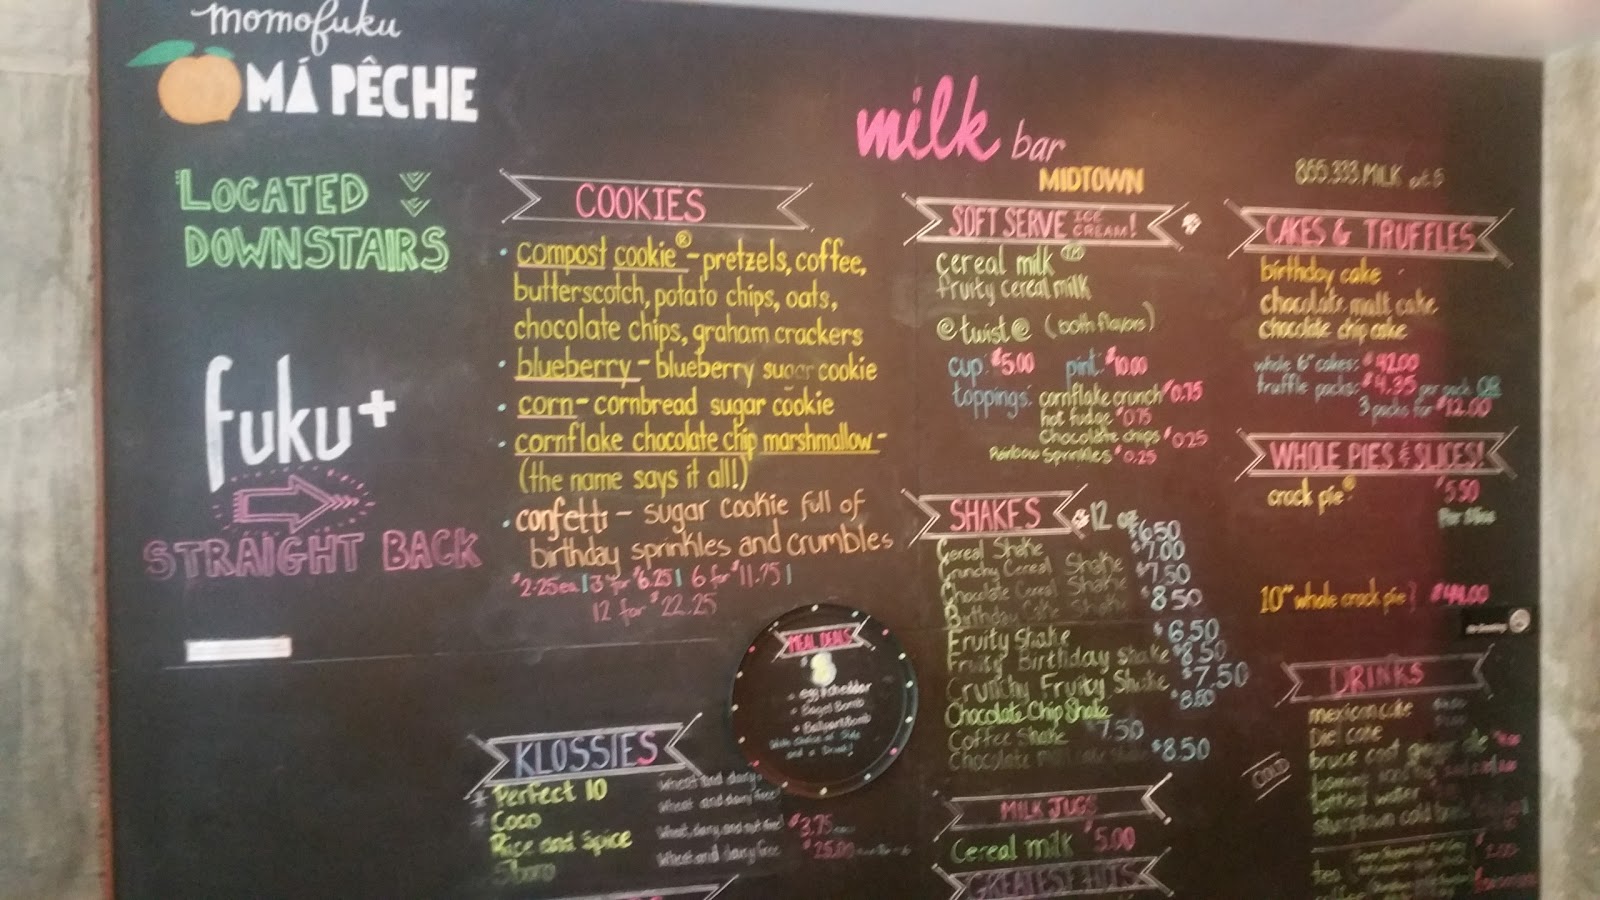 momofuku
MÁ PÊCHE
LOCATED
DOWNSTAIRS
fuku+
STRAIGHT BACK
milk bar
MIDTOWN
COOKIES
• compost cookie® - pretzels, coffee,
butterscotch, potato chips, oats,
chocolate chips, graham crackers
• blueberry - blueberry sugar cookie
• corn - cornbread sugar cookie
• cornflake chocolate chip marshmallow -
(the name says it all!)
• confetti - sugar cookie full of
birthday sprinkles and crumbles
$2.25ea | 3 for $6.25 | 6 for $11.75 |
12 for $22.25
KLOSSIES
Perfect 10 Wheat and dairy
Coco Wheat and dairy free
Rice and Spice Wheat, dairy, and nut free $3.75
Wheat and dairy free $25.00
MEAL DEALS
$8
egg & cheddar
Bagel Bomb
Bomb
With Choice of Side
and a Drink!
SOFT SERVE ICE CREAM!
cereal milk™
fruity cereal milk
@ twist @ (both flavors)
cup: $5.00 pint: $10.00
toppings: cornflake crunch $0.75
hot fudge $0.75
Chocolate chips $0.25
Rainbow Sprinkles $0.25
SHAKES 12 oz
Cereal Shake $6.50
Crunchy Cereal Shake $7.00
Chocolate Cereal Shake $7.50
Birthday Cake Shake $8.50
Fruity Shake $6.50
Fruity Birthday Shake $8.50
Crunchy Fruity Shake $7.50
Chocolate Chip Shake $8.50
Coffee Shake $7.50
Chocolate Malt Cake Shake $8.50
MILK JUGS
Cereal milk $5.00
GREATEST HITS
855.333.MILK ext 5
CAKES & TRUFFLES
birthday cake
chocolate malt cake
chocolate chip cake
whole 6" cakes: $42.00
truffle packs: $4.35 per pack OR
3 packs for $12.00
WHOLE PIES & SLICES!
crack pie® $5.50
Per Slice
10" whole crack pie $44.00
DRINKS
COLD
mexican coke
Diet coke
bruce cost ginger ale
bottled water
stumptown cold
tea